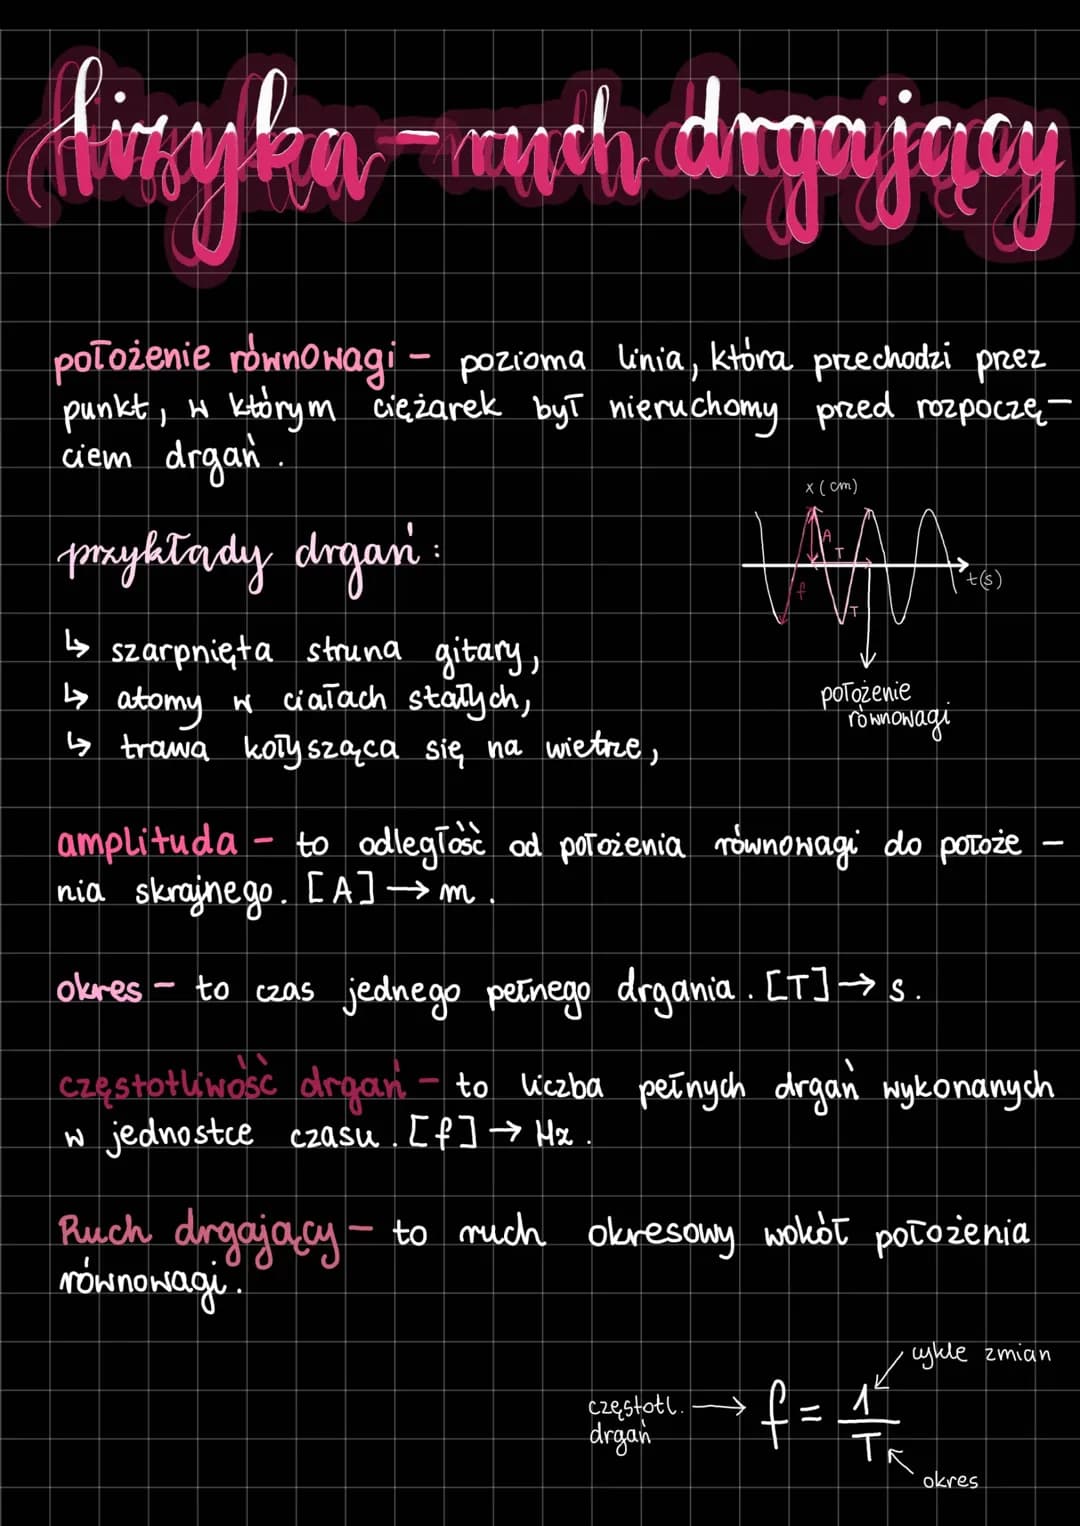 fizyka - ruch drgający
położenie równowagi - pozioma linia, która przechodzi przez
punkt, w którym ciężarek był nieruchomy przed rozpoczę-
ciem drgań.
x (cm)
A
T
t(s)
f
T
położenie
równowagi
przykłady drgań:
↳ szarpnięta struna gitary,
↳ atomy w ciałach stałych,
↳ trawa kołysząca się na wietrze,
amplituda - to odległość od położenia równowagi do położe-
nia skrajnego. [A] → m.
okres - to czas jednego pełnego drgania. [T] → s.
częstotliwość drgań - to liczba pełnych drgań wykonanych
w jednostce czasu. [f] → Hz.
Ruch drgający - to ruch okresowy wokół położenia
równowagi.
cykle zmian
częstotl. → f = 1/T
drgań
okres